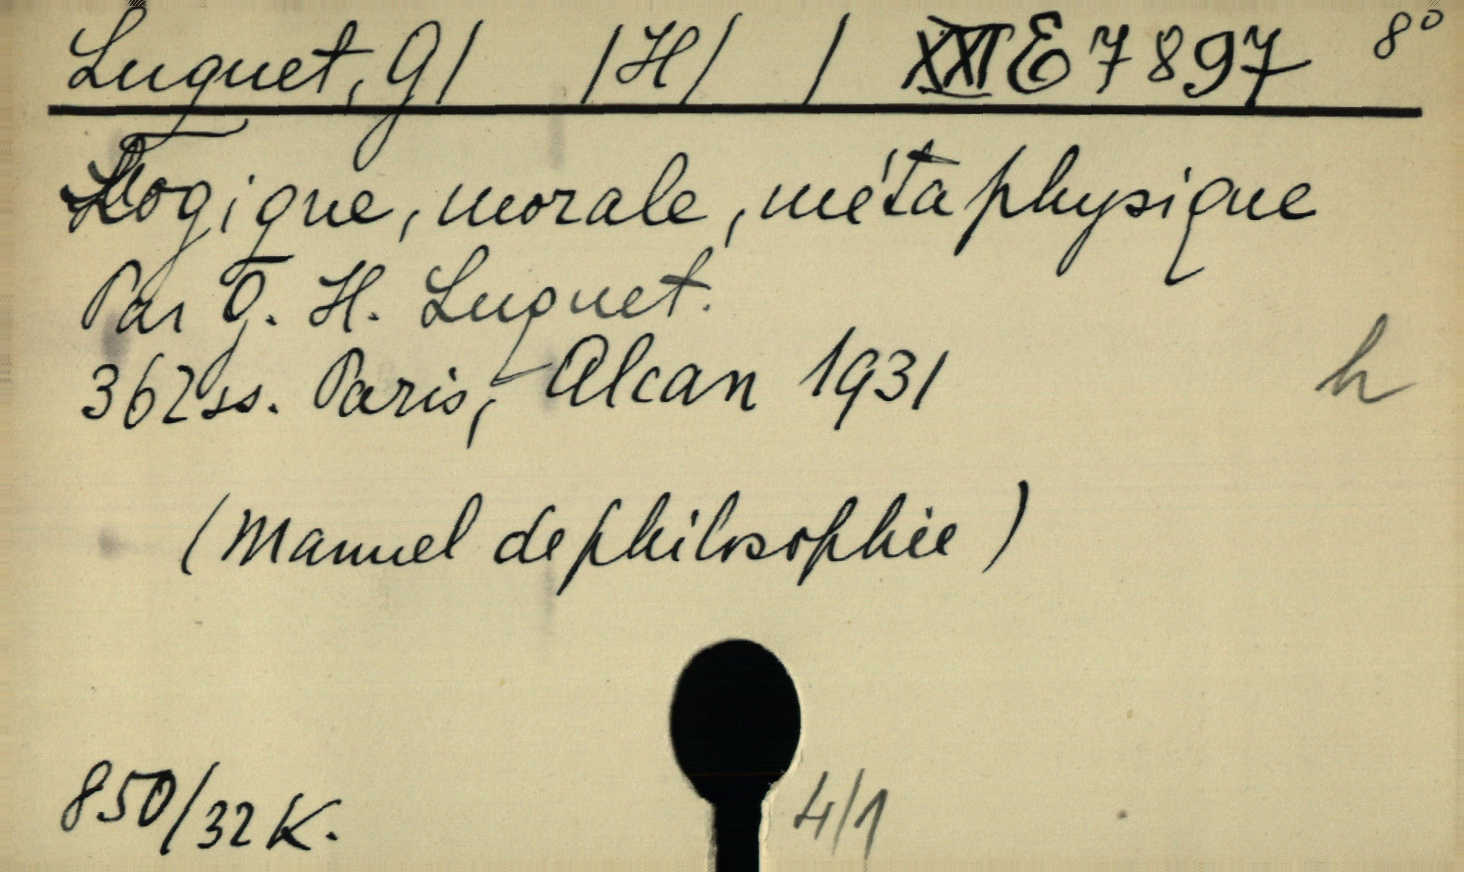 Luquet, G/ /H/ / XXI E 7897 8°
Logique, morale, métaphysique
Par G. H. Luquet.
362 ss. Paris, Alcan 1931
h
(Manuel de philosophie)
850/32 K.
4/1